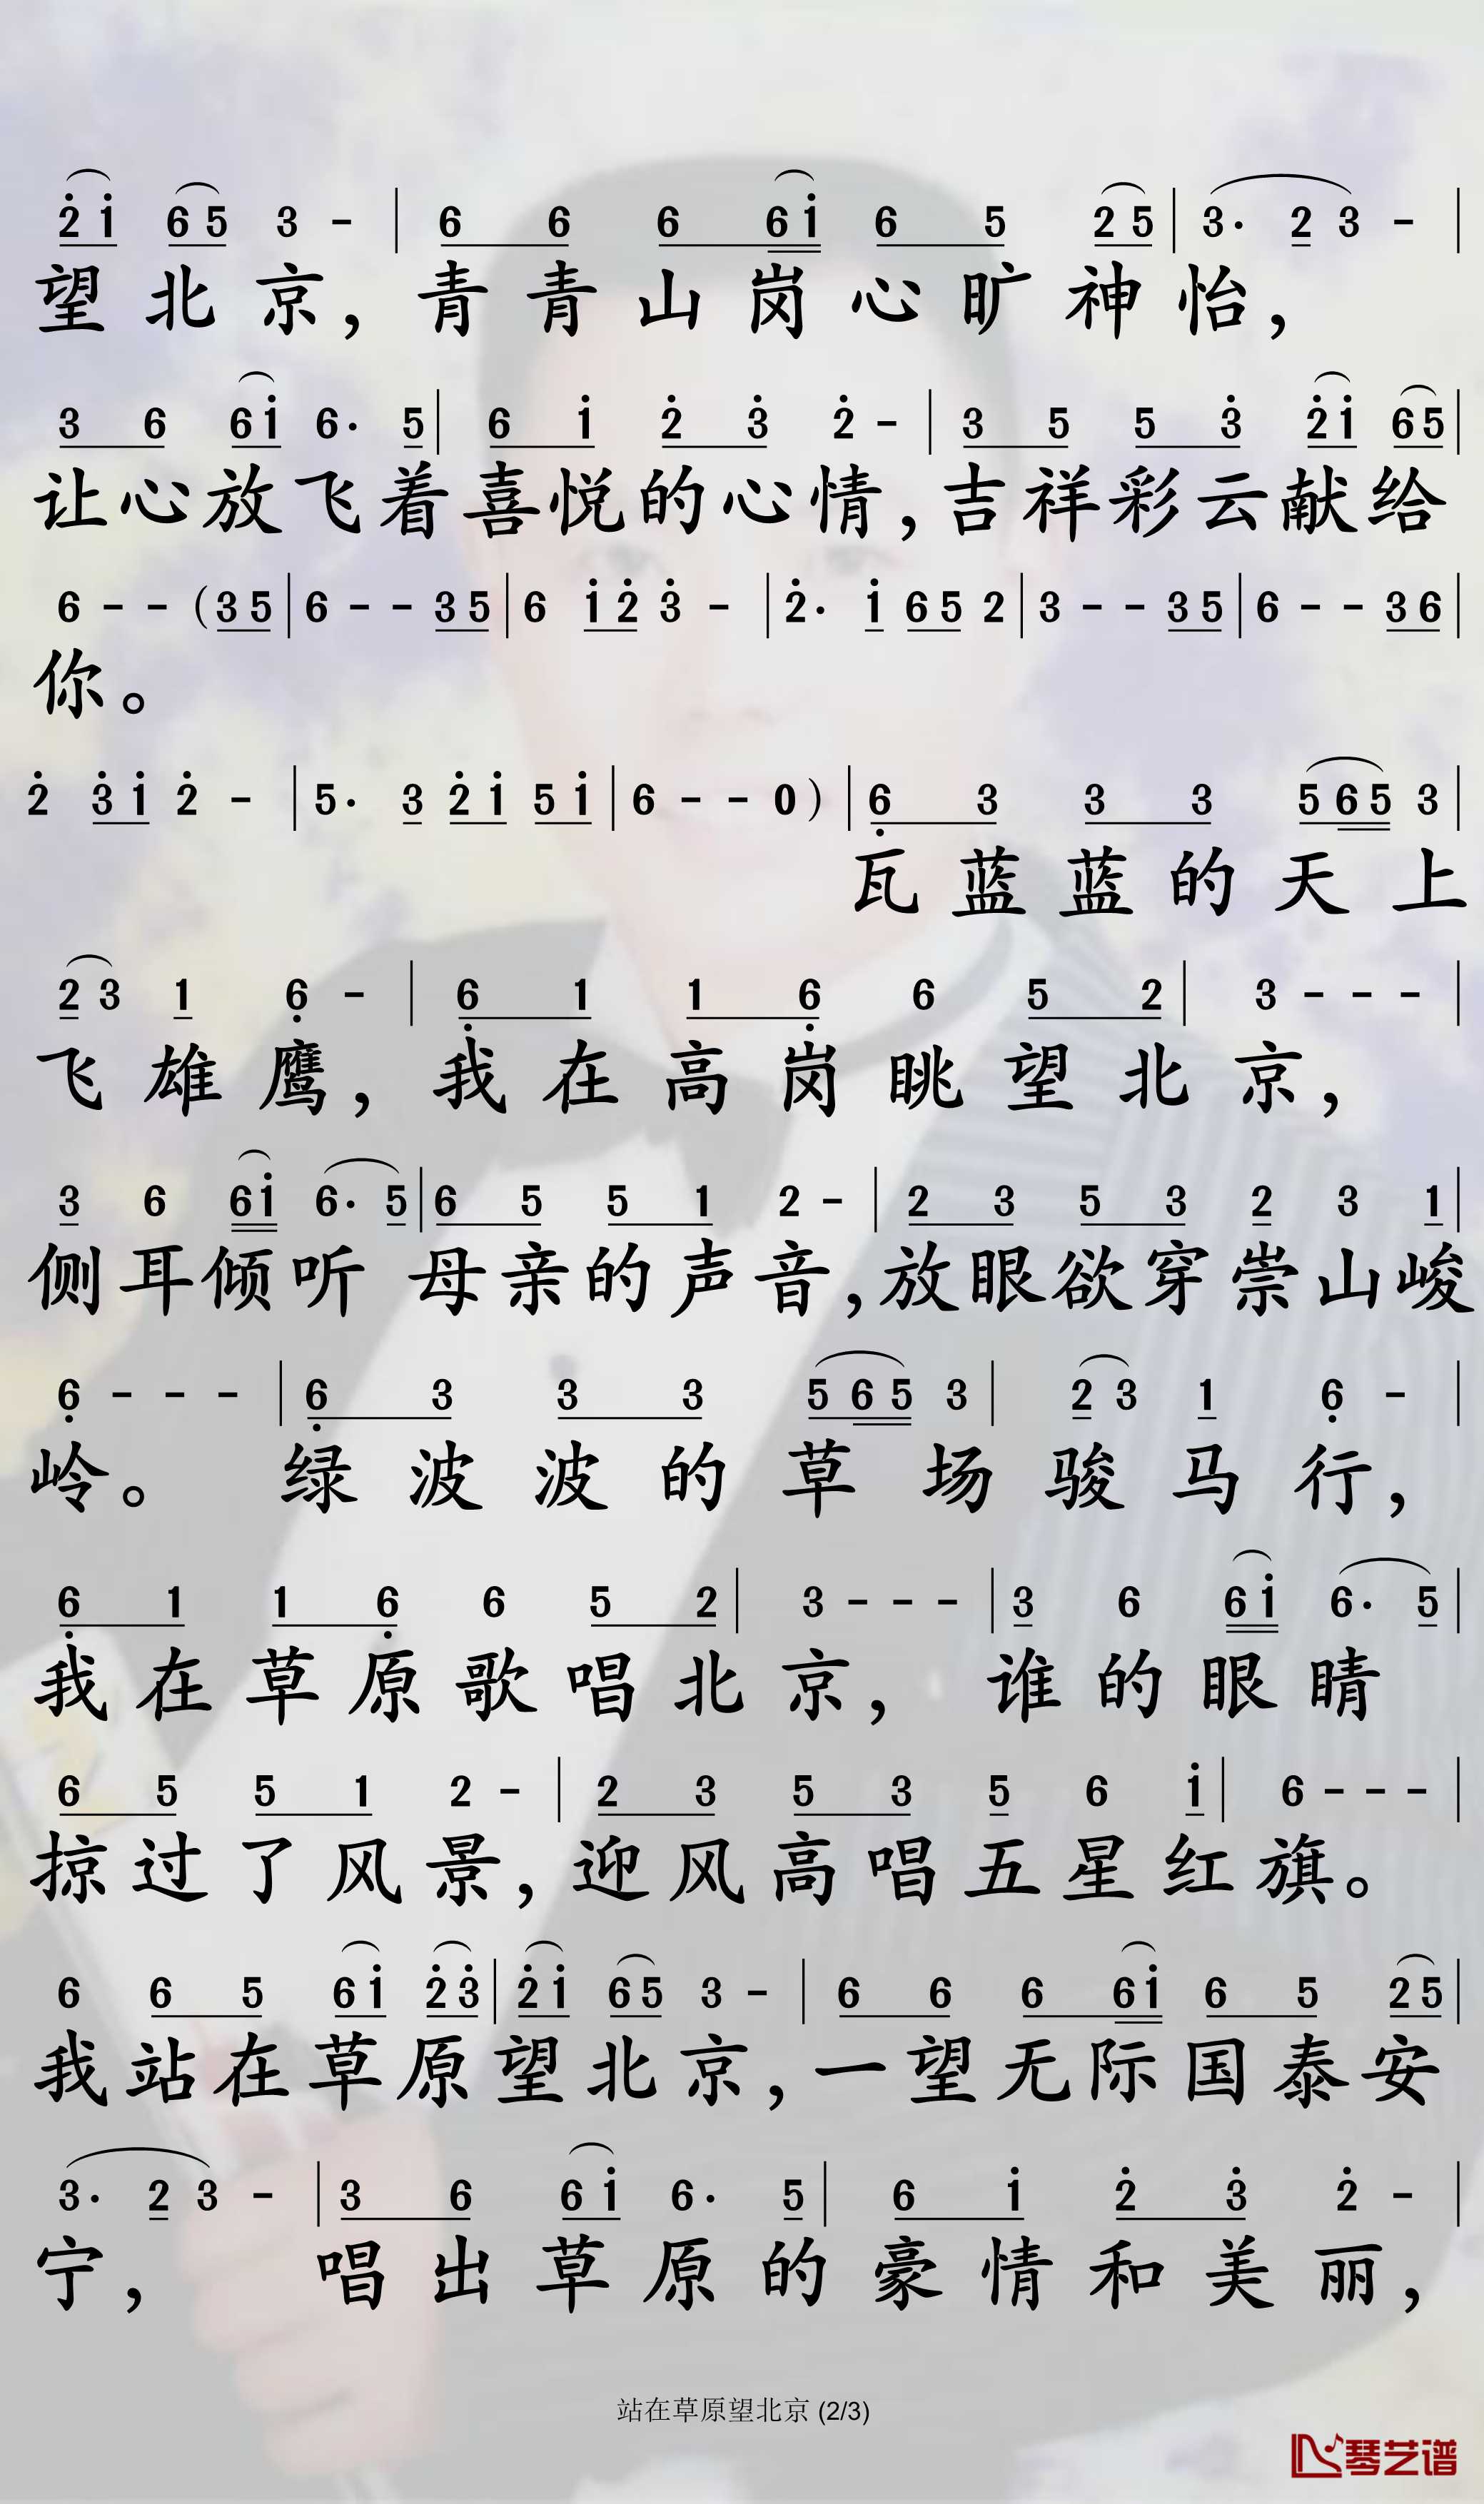 2̇ 1̇ 6 5 3 - | 6 6 6 6 1̇ 6 5 2 5 | 3· 2 3 - |
望北京，青青山岗心旷神怡，
3 6 6 1̇ 6· 5 | 6 1̇ 2̇ 3̇ 2̇ - | 3 5 5 3̇ 2̇ 1̇ 6 5 |
让心放飞着喜悦的心情，吉祥彩云献给
6 - - (3 5 | 6 - - 3 5 | 6 1̇ 2̇ 3̇ - | 2̇· 1̇ 6 5 2 | 3 - - 3 5 | 6 - - 3 6 |
你。
2̇ 3̇ 1̇ 2̇ - | 5· 3 2̇ 1̇ 5 1̇ | 6 - - 0) | 6̣ 3 3 3 5 6 5 3 |
瓦蓝蓝的天上
2 3 1 6̣ - | 6̣ 1 1 6̣ 6 5 2 | 3 - - - |
飞雄鹰，我在高岗眺望北京，
3 6 6 1̇ 6· 5 | 6 5 5 1 2 - | 2 3 5 3 2 3 1 |
侧耳倾听 母亲的声音，放眼欲穿崇山峻
6̣ - - - | 6̣ 3 3 3 5 6 5 3 | 2 3 1 6̣ - |
岭。绿波波的草场骏马行，
6̣ 1 1 6̣ 6 5 2 | 3 - - - | 3 6 6 1̇ 6· 5 |
我在草原歌唱北京，谁的眼睛
6 5 5 1 2 - | 2 3 5 3 5 6 1̇ | 6 - - - |
掠过了风景，迎风高唱五星红旗。
6 6 5 6 1̇ 2̇ 3̇ | 2̇ 1̇ 6 5 3 - | 6 6 6 6 1̇ 6 5 2 5 |
我站在草原望北京，一望无际国泰安
3· 2 3 - | 3 6 6 1̇ 6· 5 | 6 1̇ 2̇ 3̇ 2̇ - |
宁，唱出草原的豪情和美丽，
站在草原望北京 (2/3)
琴艺谱